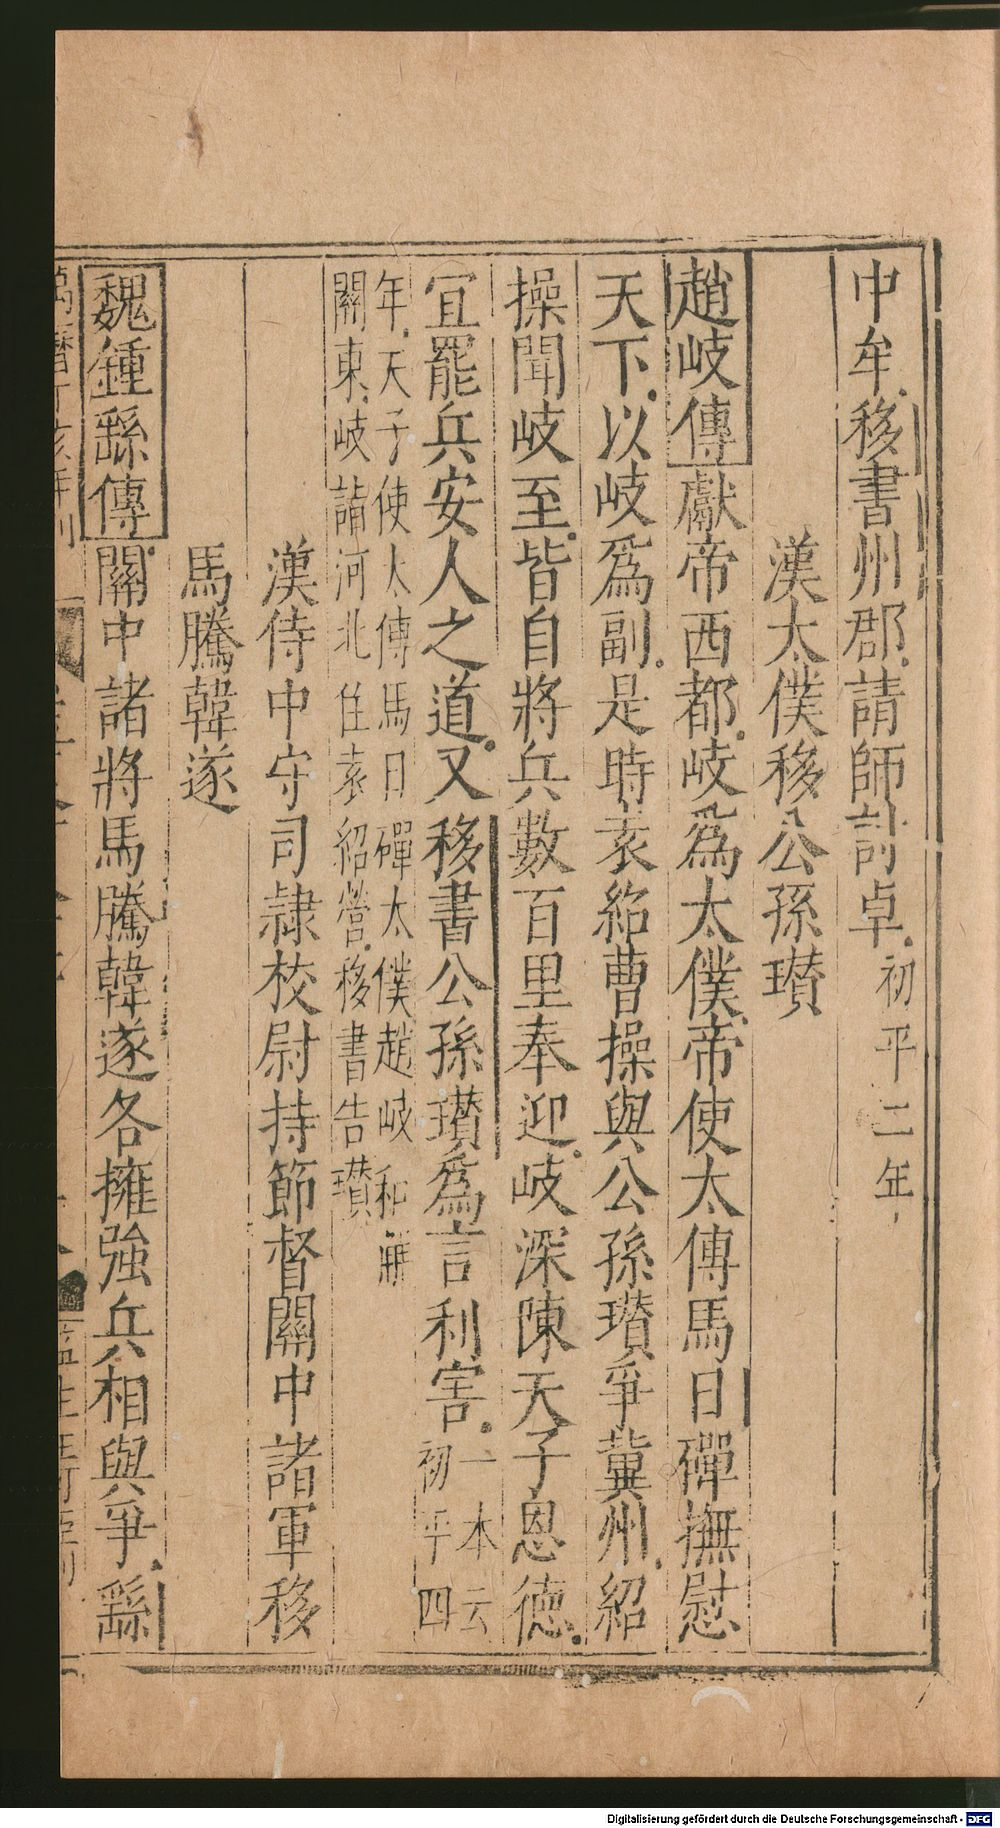 中牟移書州郡請師討卓初平二年
漢太僕移公孫瓚
趙岐傳獻帝西都岐爲太僕帝使太傅馬日磾撫慰
天下以岐爲副是時袁紹曹操與公孫瓚爭冀州紹
操聞岐至皆自將兵數百里奉迎岐深陳天子恩德
宜罷兵安人之道又移書公孫瓚爲言利害一本云初平四
年天子使太傅馬日磾太僕趙岐和解
關東岐詣河北住袁紹營移書告瓚
漢侍中守司隷校尉持節督關中諸軍移
馬騰韓遂
魏鍾繇傳關中諸將馬騰韓遂各擁強兵相與爭繇
Digitalisierung gefördert durch die Deutsche Forschungsgemeinschaft - DFG